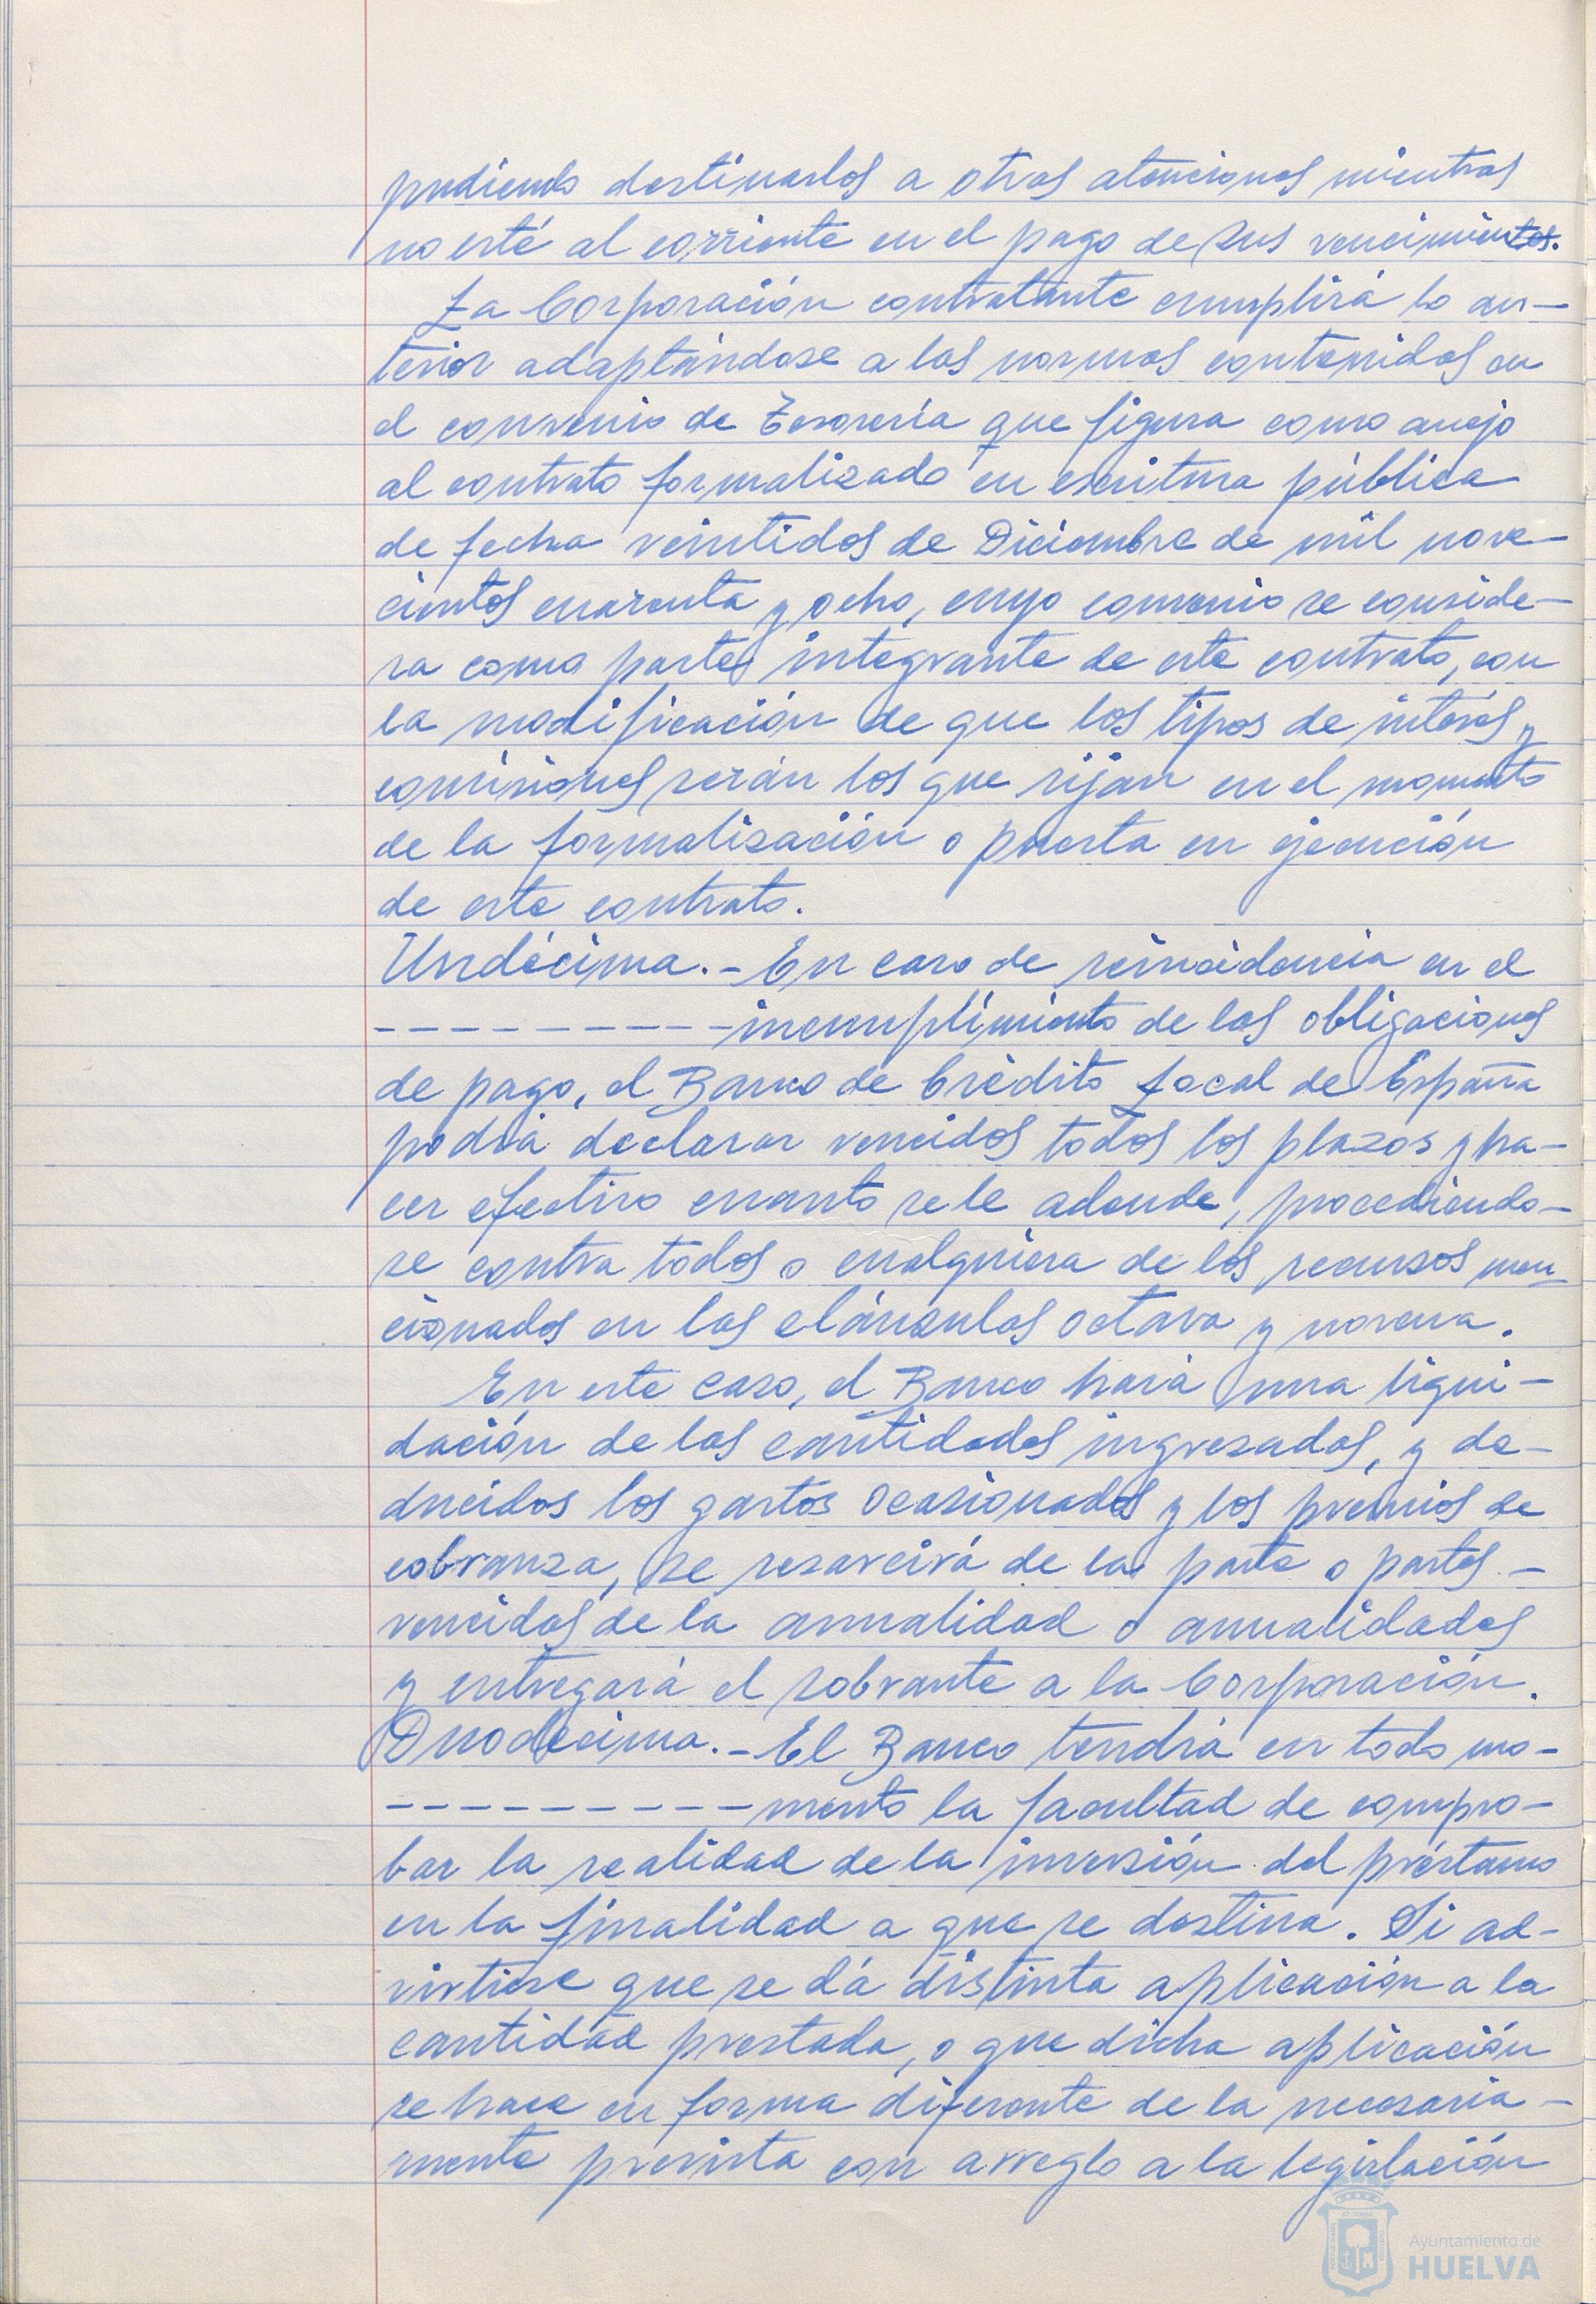 pudiendo destinarlos a otras atenciones mientras
no esté al corriente en el pago de sus vencimientos.
La Corporación contratante cumplirá lo an-
terior adaptándose a las normas contenidas en
el convenio de Tesorería que figura como anejo
al contrato formalizado en escritura pública
de fecha veintidos de Diciembre de mil nove-
cientos cuarenta y ocho, cuyo convenio se conside-
ra como parte integrante de este contrato, con
la modificación de que los tipos de interés y
comisiones serán los que rijan en el momento
de la formalización o puesta en ejecución
de este contrato.
Undécima.- En caso de reincidencia en el
---------- incumplimiento de las obligaciones
de pago, el Banco de Crédito Local de España
podrá declarar vencidos todos los plazos y ha-
cer efectivo cuanto se le adeude, procediendo-
se contra todos o cualquiera de los recursos men-
cionados en las cláusulas octava y novena.
En este caso, el Banco hará una liqui-
dación de las cantidades ingresadas, y de-
ducidos los gastos ocasionados y los premios de
cobranza, se resarcirá de la parte o partes -
vencidas de la anualidad o anualidades
y entregará el sobrante a la Corporación.
Duodécima.- El Banco tendrá en todo mo-
---------- mento la facultad de compro-
bar la realidad de la inversión del préstamo
en la finalidad a que se destina. Si ad-
virtiese que se dá distinta aplicación a la
cantidad prestada, o que dicha aplicación
se hace en forma diferente de la necesaria-
mente prevista con arreglo a la legislación
Ayuntamiento de
HUELVA